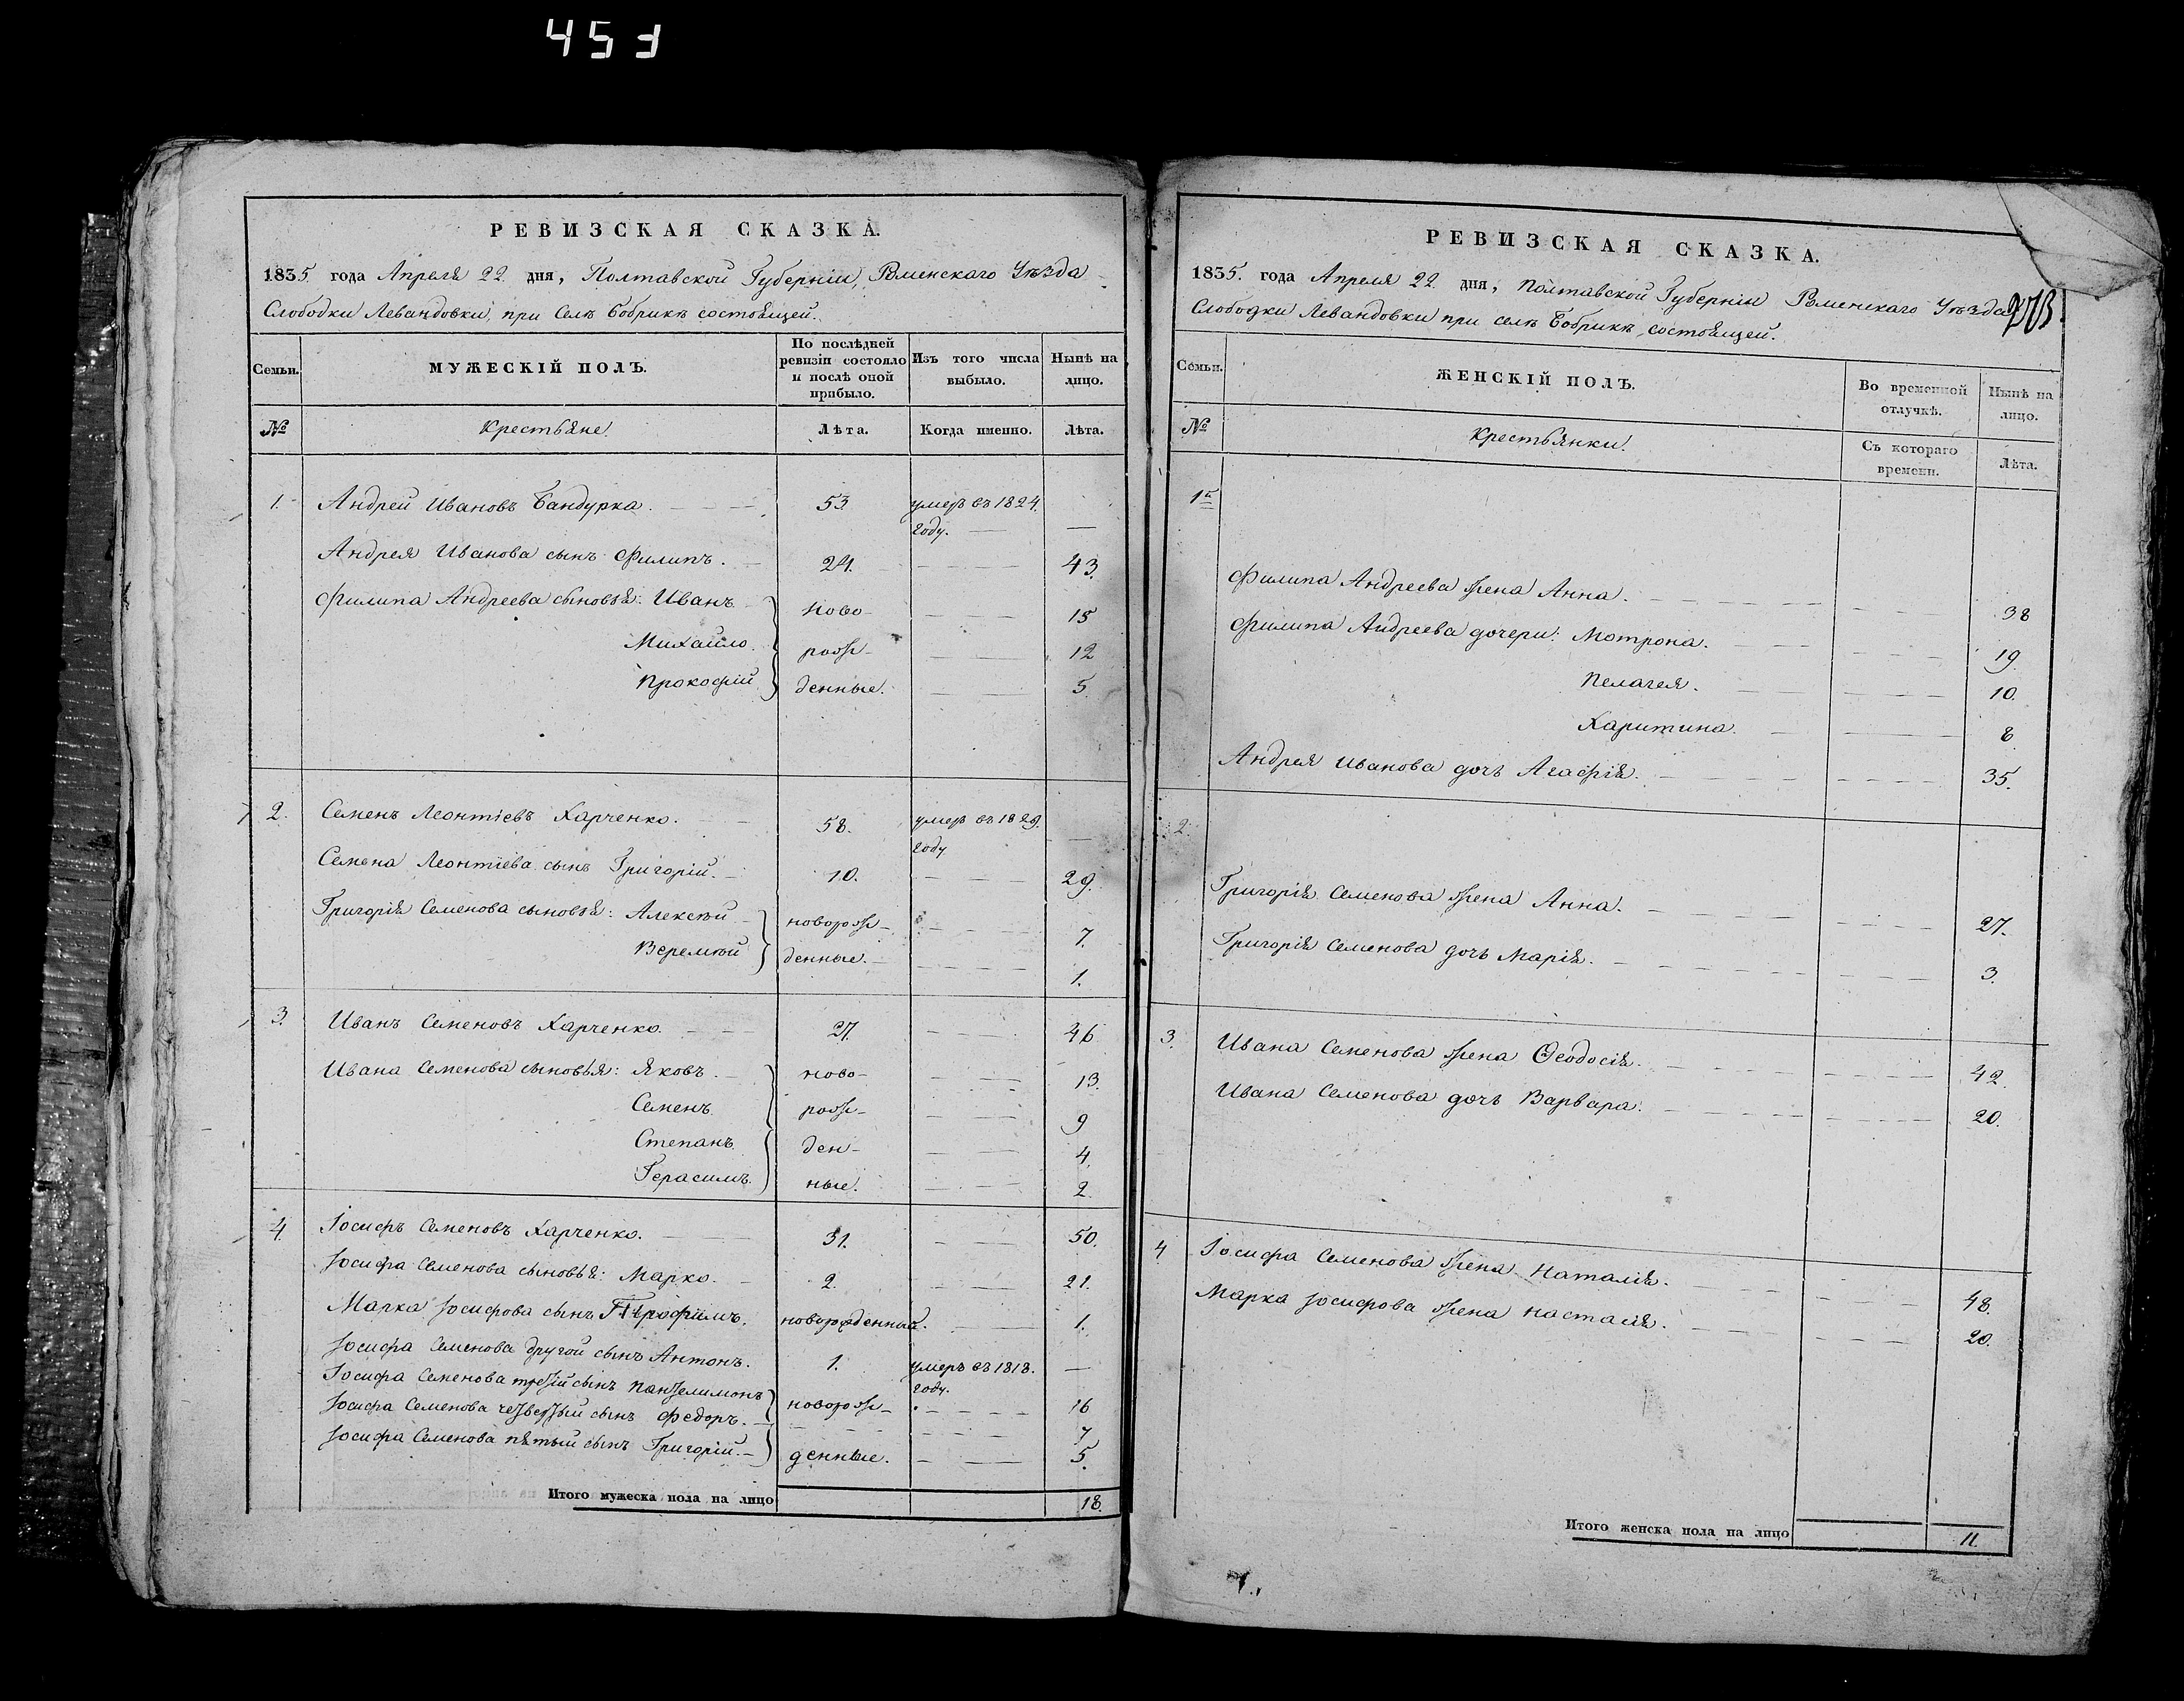 453
РЕВИЗСКАЯ СКАЗКА.
1835. года Апреля 22 дня, Полтавской Губерніи, Роменскаго Уѣзда
Слободки Левандовки при селѣ Бобрикѣ состоящей.
Семьи.
МУЖЕСКІЙ ПОЛЪ.
По послѣдней ревизіи состояло и послѣ оной прибыло.
Изъ того числа выбыло.
Нынѣ на лицо.
№
Крестьяне.
Лѣта.
Когда именно.
Лѣта.
1. Андрей Ивановъ Бандурка. 53. умеръ въ 1824. —
году.
Андрея Иванова сынъ Филипъ. 24. — 43.
Филипа Андреева сыновья: Иванъ ново- — 15
Михайло. рож- — 12
Прокофій денные. — 5.
2. Семенъ Леонтіевъ Харченко. 58. умеръ въ 1829. —
году
Семена Леонтіева сынъ Григорій. 10. — 29.
Григорія Семенова сыновья: Алексѣй новорож- — 7.
Веремѣй денные. — 1.
3. Иванъ Семеновъ Харченко. 27. — 46
Ивана Семенова сыновья: Яковъ. ново- — 13.
Семенъ рож- — 9
Степанъ ден- — 4.
Герасимъ. ные. — 2.
4. Іосифъ Семеновъ Харченко. 31. — 50.
Іосифа Семенова сыновья: Марко. 2. — 21.
Марка Іосифова сынъ Трофимъ. новорожденный. — 1.
Іосифа Семенова другой сынъ Антонъ. 1. умеръ въ 1818. —
году.
Іосифа Семенова третій сынъ Пантелимонъ новорож- — 16
Іосифа Семенова четвертый сынъ Федоръ. — 7
Іосифа Семенова пятый сынъ Григорій. денные. — 5.
Итого мужеска пола на лицо 18.
РЕВИЗСКАЯ СКАЗКА.
1835. года Апреля 22 дня, Полтавской Губерніи Роменскаго Уѣзда
Слободки Левандовки при селѣ Бобрикѣ состоящей.
Семьи.
ЖЕНСКІЙ ПОЛЪ.
Во временной отлучкѣ.
Нынѣ на лицо.
№
Крестьянки.
Съ котораго времени.
Лѣта.
1я
Филипа Андреева жена Анна. — 38
Филипа Андреева дочери: Мотрона. — 19.
Пелагея. — 10.
Харитина. — 8.
Андрея Иванова дочь Агафія. — 35.
2.
Григорія Семенова жена Анна. — 27.
Григорія Семенова дочь Марія. — 3.
3. Ивана Семенова жена Ѳеодосія. — 42.
Ивана Семенова дочь Варвара. — 20.
4 Іосифа Семенова жена Наталія. — 48.
Марка Іосифова жена Настасія. — 20.
Итого женска пола на лицо 11.